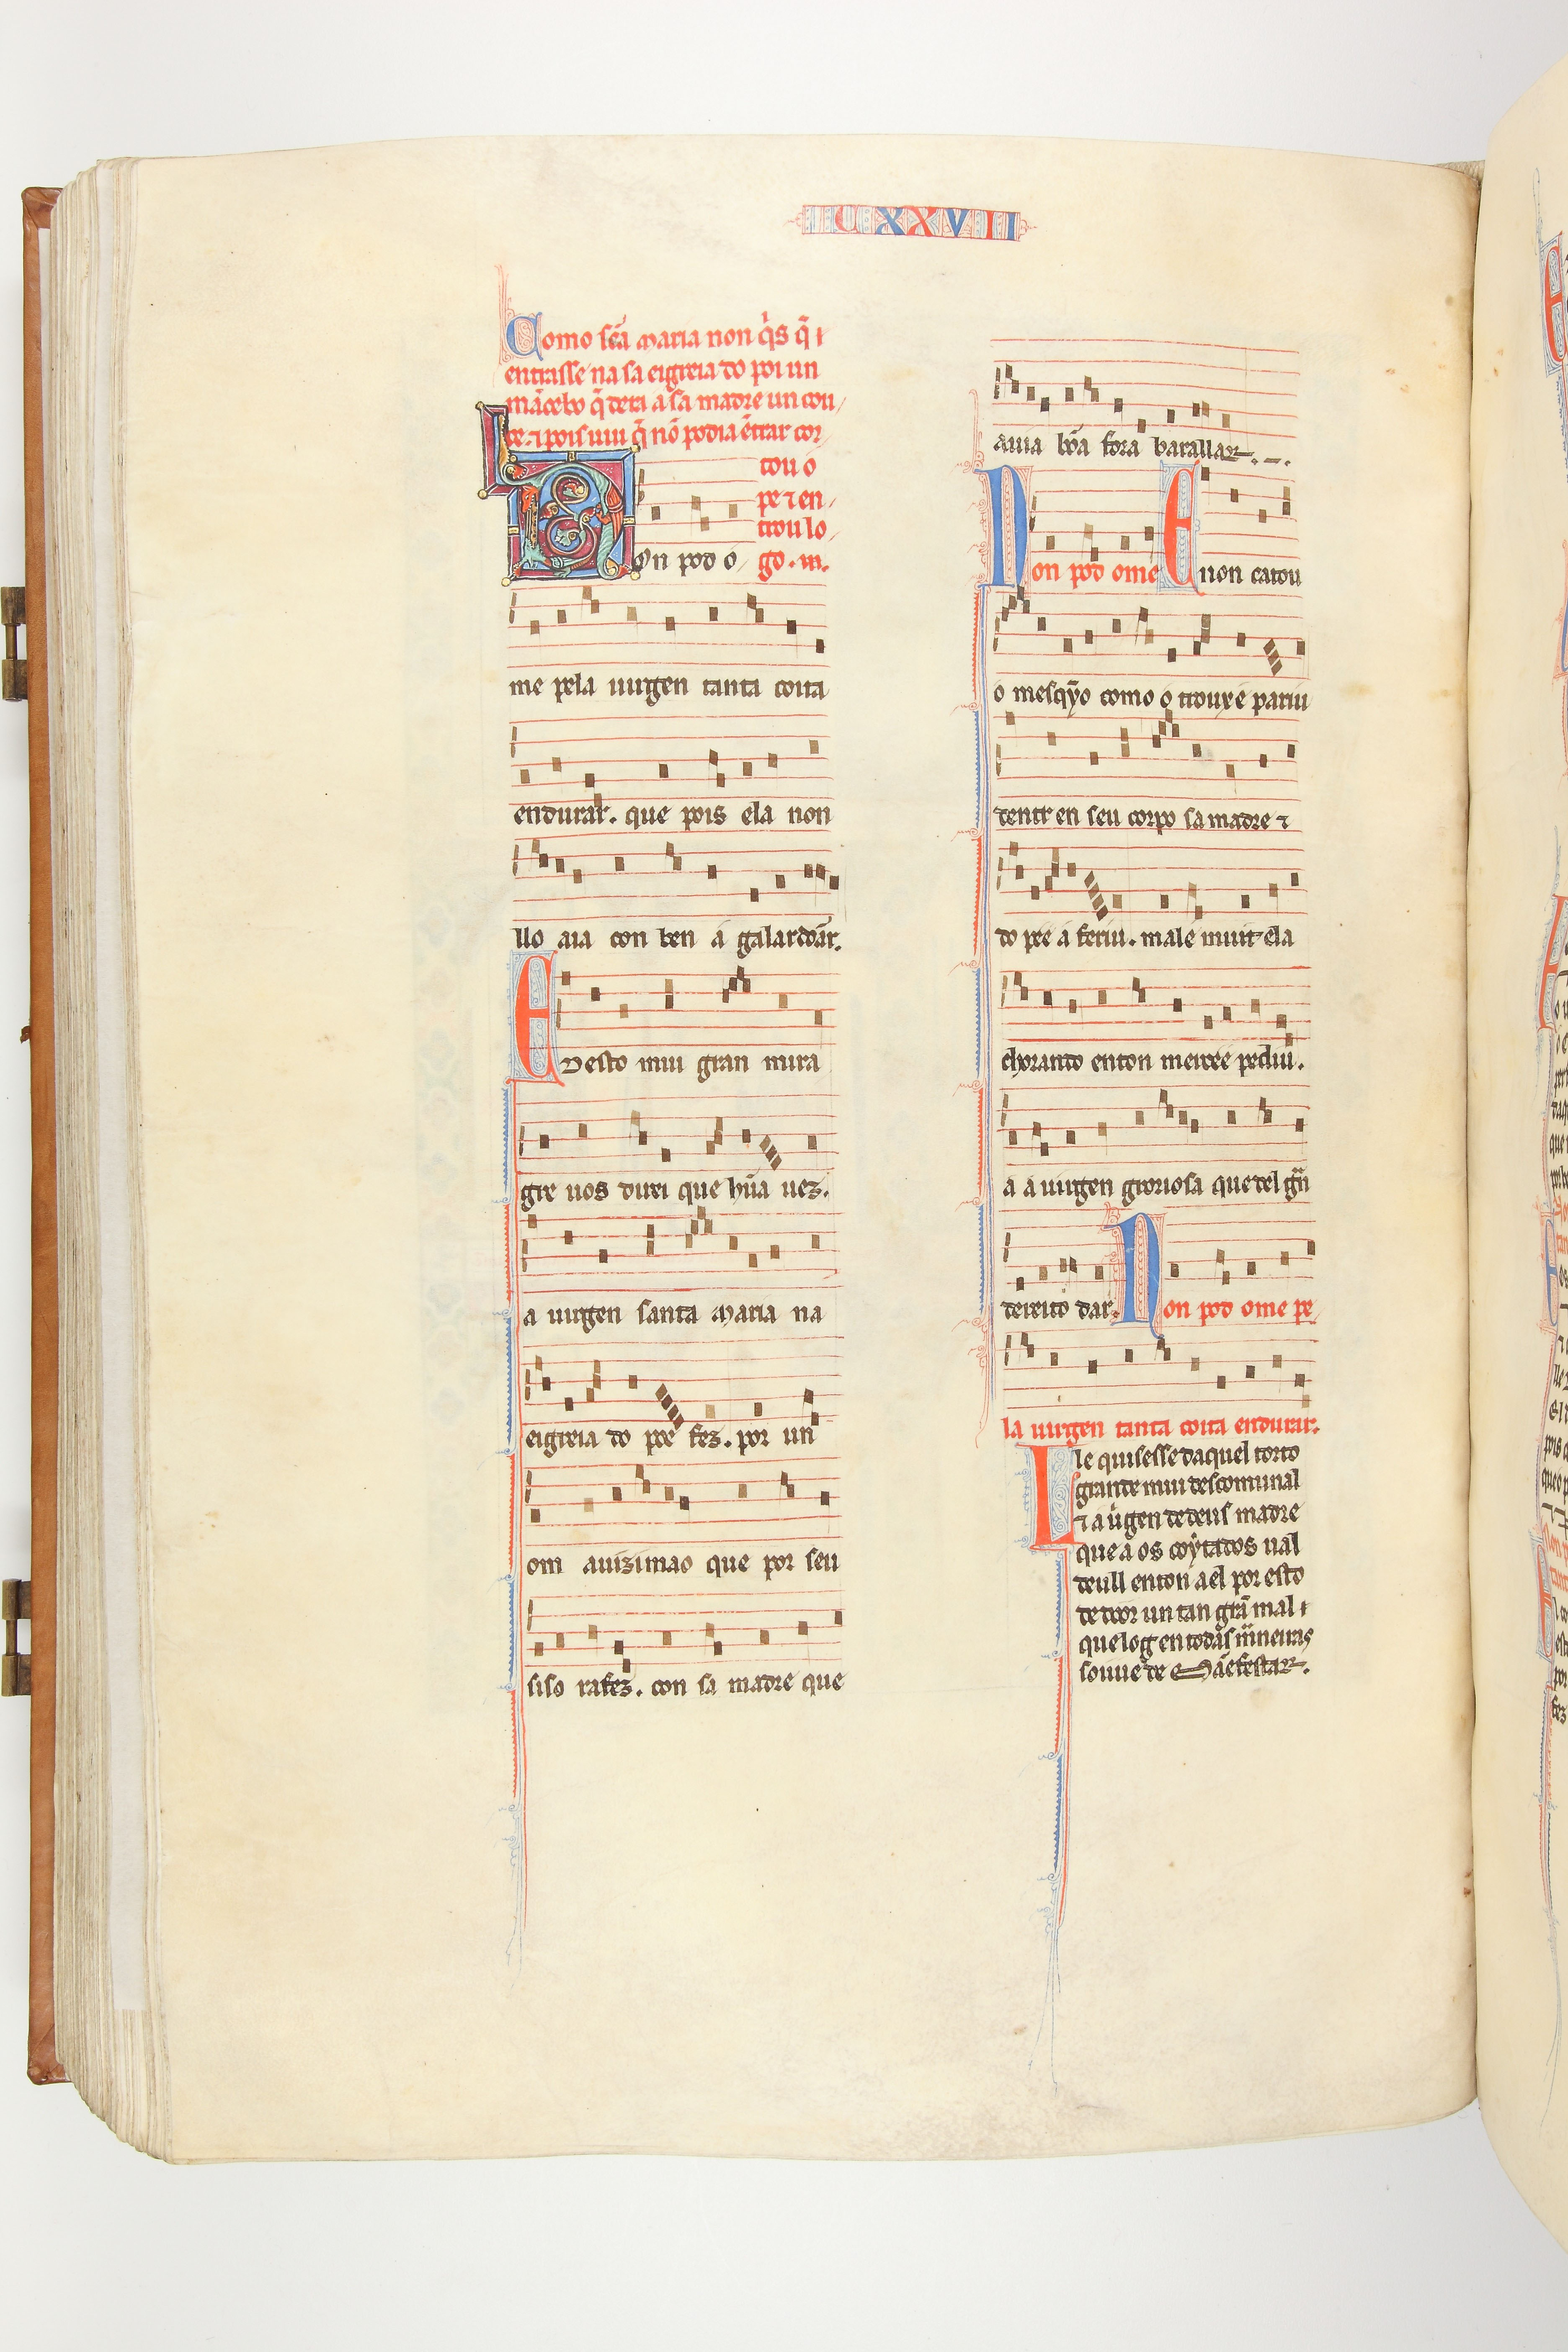 CXXVII
Como sc̃a maria non q̇s q̃ i
entrasse na sa eigreia do poi un
mãcebo q̃ deu a sa madre un cou/
ce. ⁊ pois uiu q̃ nõ podia ẽtrar cor/
tou o
pe ⁊ en/
trou lo/
go. m.
Non pod o/
me pela uirgen tanta coita
endurar. que pois ela non
llo aia con ben a galardõar.
E desto mui gran mira
gre uos direi que hũa uez.
a uirgen santa maria na
eigreia do poe fez. por un
om auizimao que por seu
siso rafez. con sa madre que
auia bõa fora barallar.
Non pod ome E non catou
o mesq̃yo como o trouxe e pariu
dentr en seu corpo sa madre ⁊
do pee a feriu. mal e muit ela
chorando enton mercee pediu.
a a uirgen groriosa que del grã
dereito dar. Non pod ome pe/
la uirgen tanta coita endurar.
Lle quisesse daquel torto
grande mui descomunal
⁊ a uirgen de deus madre
que a os coytados ual
deull enton a el por esto
de door un tan grã mal i
que log en todas mãneiras
souue de mãefestar.